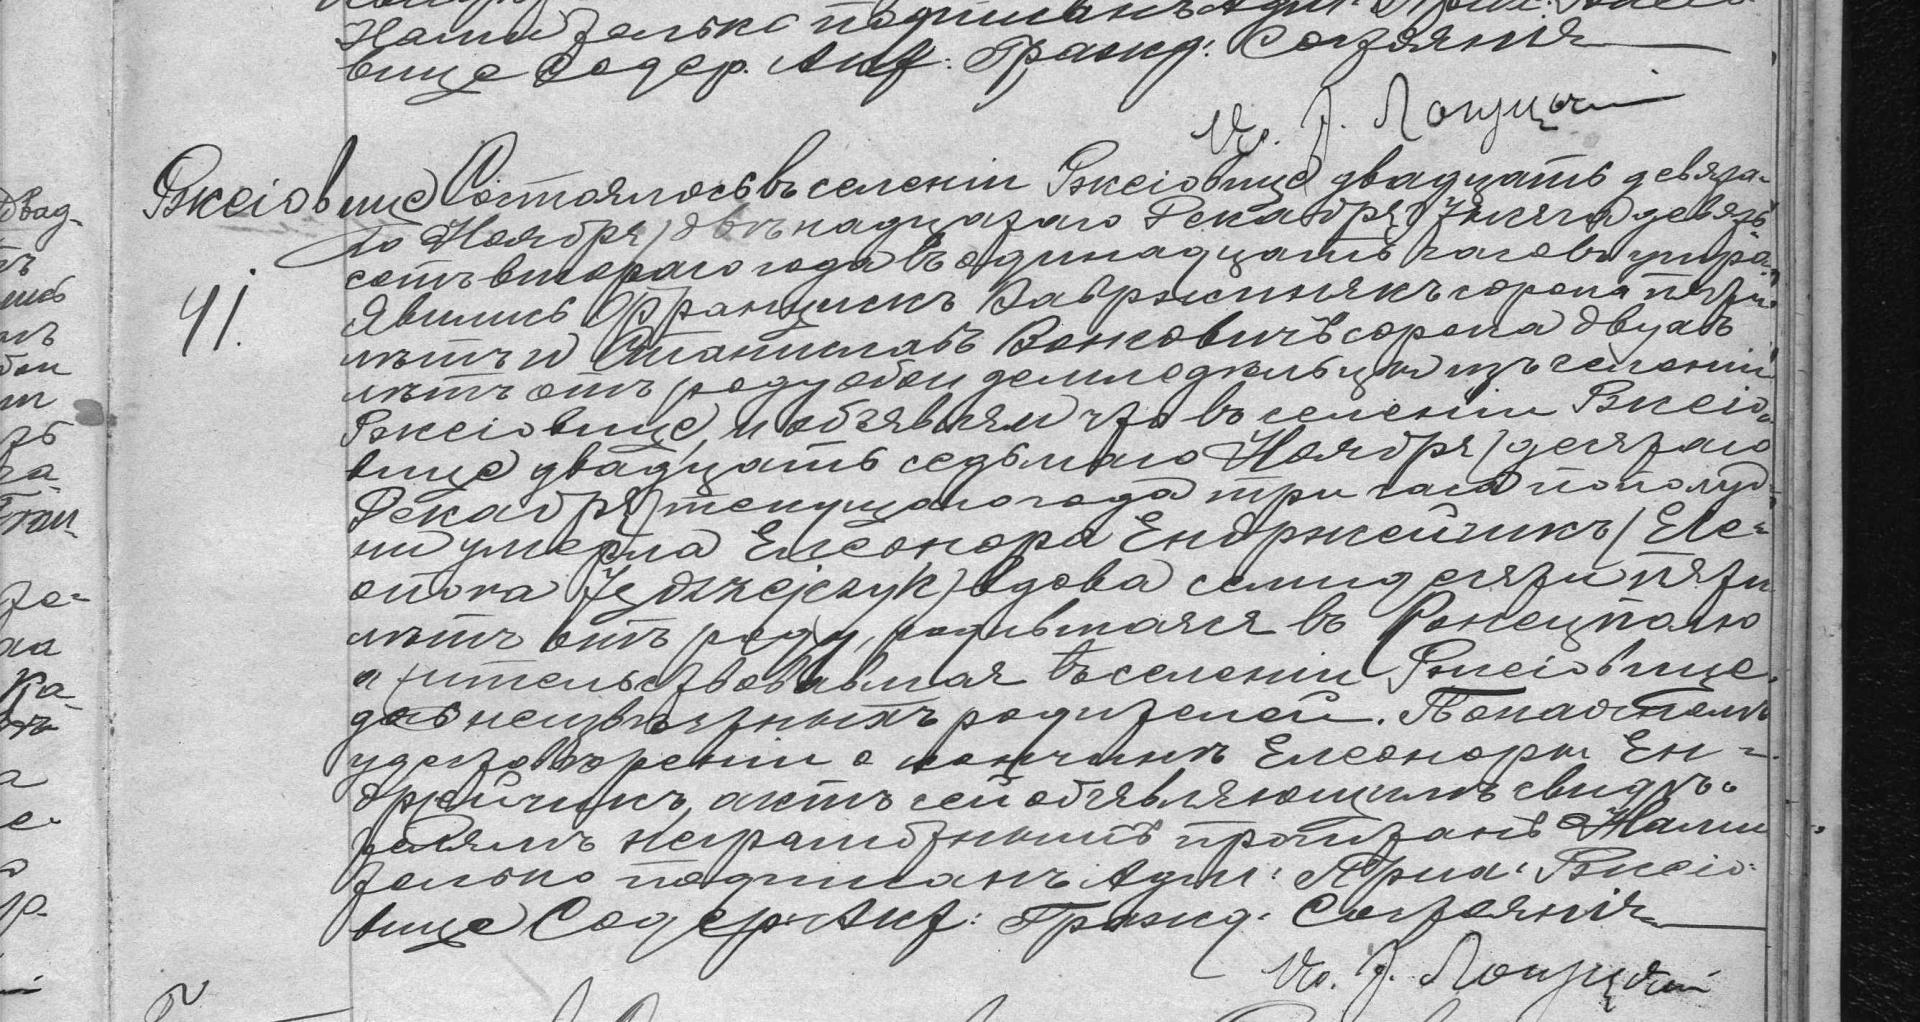 Нами только подписанъ Адм: Прих: Ржеіо-
вице Содер. Акт: Гражд: Состоянія
Кс. Лопуцкій
Ржеіовице Состоялось въ селеніи Ржеіовице двадцать девята-
41.
го Ноября / двѣнадцатаго Декабря / тысяча девять
сотъ втораго года въ одинадцать часовъ утра.
Явились Францискъ Вавржинякъ сорока пяти
лѣтъ и Станиславъ Вонсовичъ сорока двухъ
лѣтъ отъ роду обои земледѣльцы изъ селенія
Ржеіовице, и объявили что въ селеніи Ржеіо-
вице двадцать седьмаго Ноября / десятаго
Декабря / текущаго года три часа пополуд-
ни умерла Елеонора Ендржейчикъ / Ele-
onora Jędrzejczyk / вдова семидесяти пяти
лѣтъ отъ роду, родившаяся въ Конецполю
а жительствовавшая въ селеніи Ржеіовице.
дочь неизвѣстныхъ родителей. По настоящемъ
удостовѣреніи о кончинѣ Елеоноры Ен-
држейчикъ, актъ сей объявляющимъ свидѣ-
телямъ неграмотнымъ прочитанъ Нами
только подписанъ Адм: Прих: Ржеіо-
вице Содер: Акт: Гражд: Состоянія
Кс. Лопуцкій